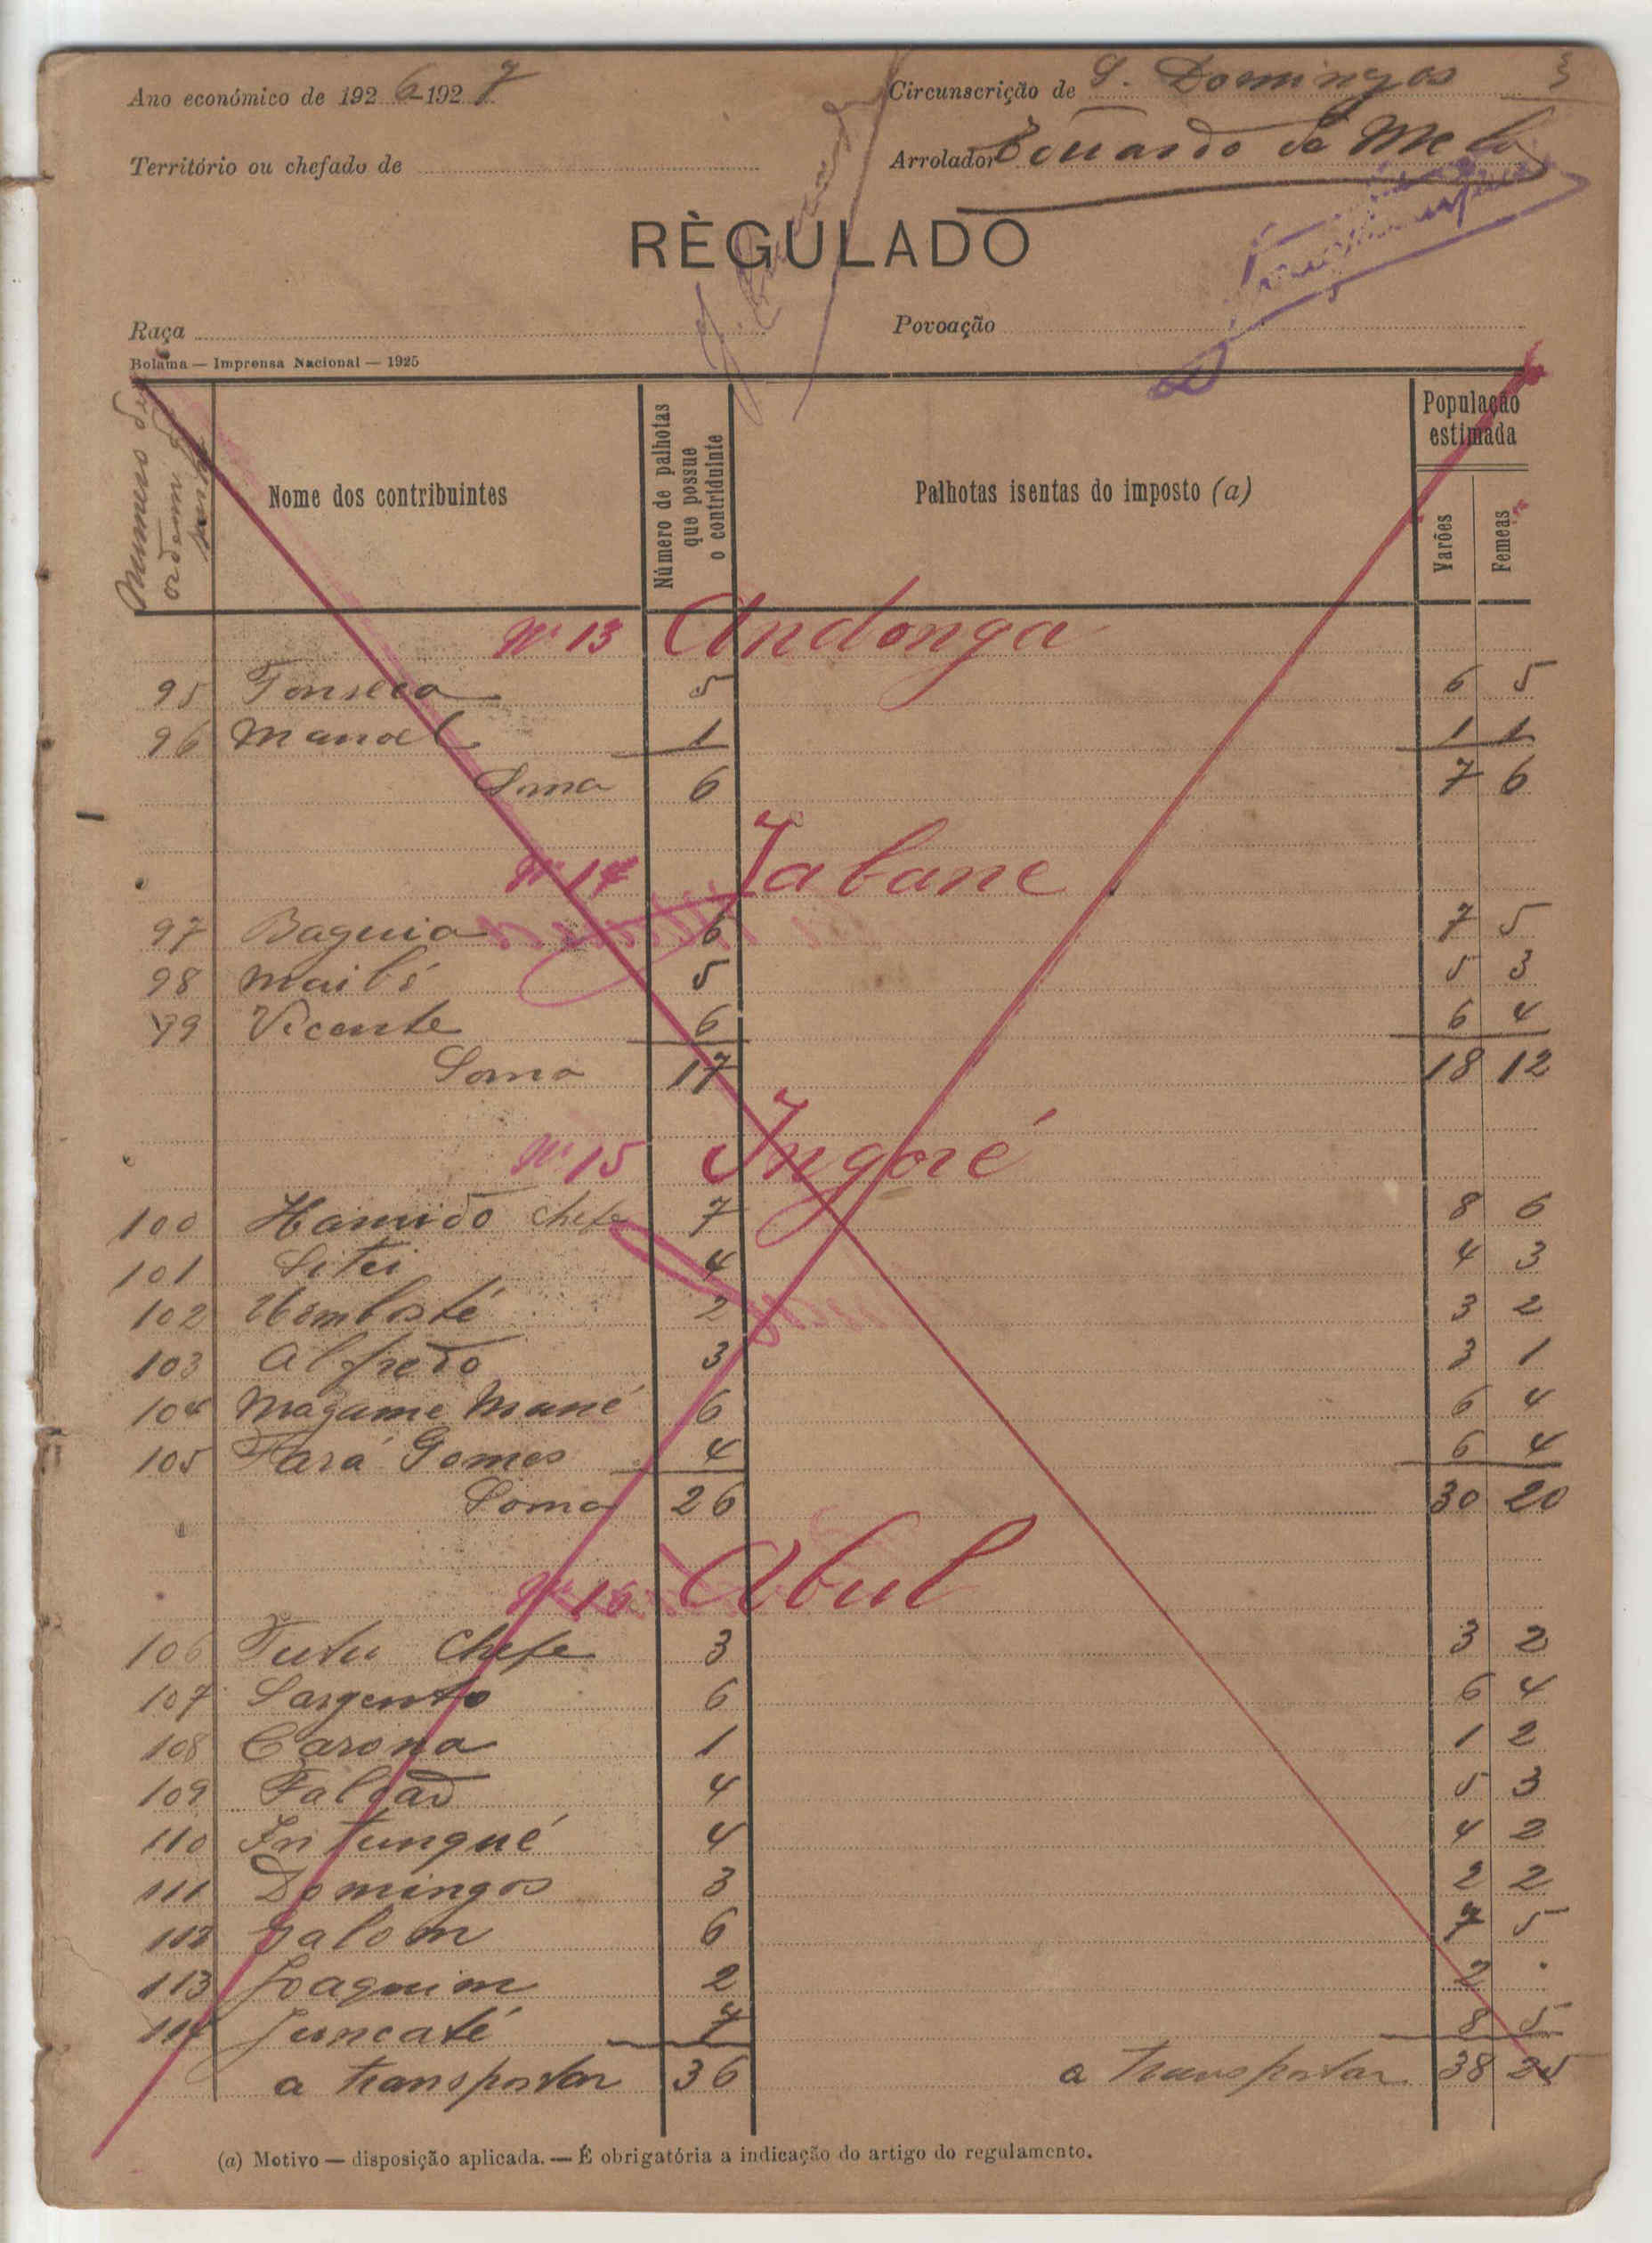 Ano económico de 1926-1927
Circunscrição de S. Domingos 3
Território ou chefado de
Arrolador Eduardo de Melo
RÈGULADO
Raça
Povoação
Bolama — Imprensa Nacional — 1925
Numero de ordem da
Nome dos contribuintes
Número de palhotas que possue o contriduinte
Palhotas isentas do imposto (a)
População estimada
Varões
Femeas
Nº 13 Andonga
95 Fonseca 5 6 5
96 Manoel 1 1 1
Soma 6 7 6
Nº 14 Jabane
97 Baguia 6 7 5
98 Mailé 5 5 3
99 Vicente 6 6 4
Soma 17 18 12
Nº 15 Ingoré
100 Hamido Chefe 7 8 6
101 Sitei 4 4 3
102 2 3 2
103 Alfredo 3 3 1
104 Magame Mané 6 6 4
105 Fará Gomes 4 6 4
Soma 26 30 20
Nº 16 Abul
106 Tutu Chefe 3 3 2
107 Sargento 6 6 4
108 Carona 1 1 2
109 Falcão 4 5 3
110 Intungué 4 4 2
111 Domingos 3 2 2
112 Salom 6 7 5
113 Joaquim 2 2 .
114 Juncaté 7 8 5
a transportar 36 a transportar 38 25
(a) Motivo — disposição aplicada. — É obrigatória a indicação do artigo do regulamento.